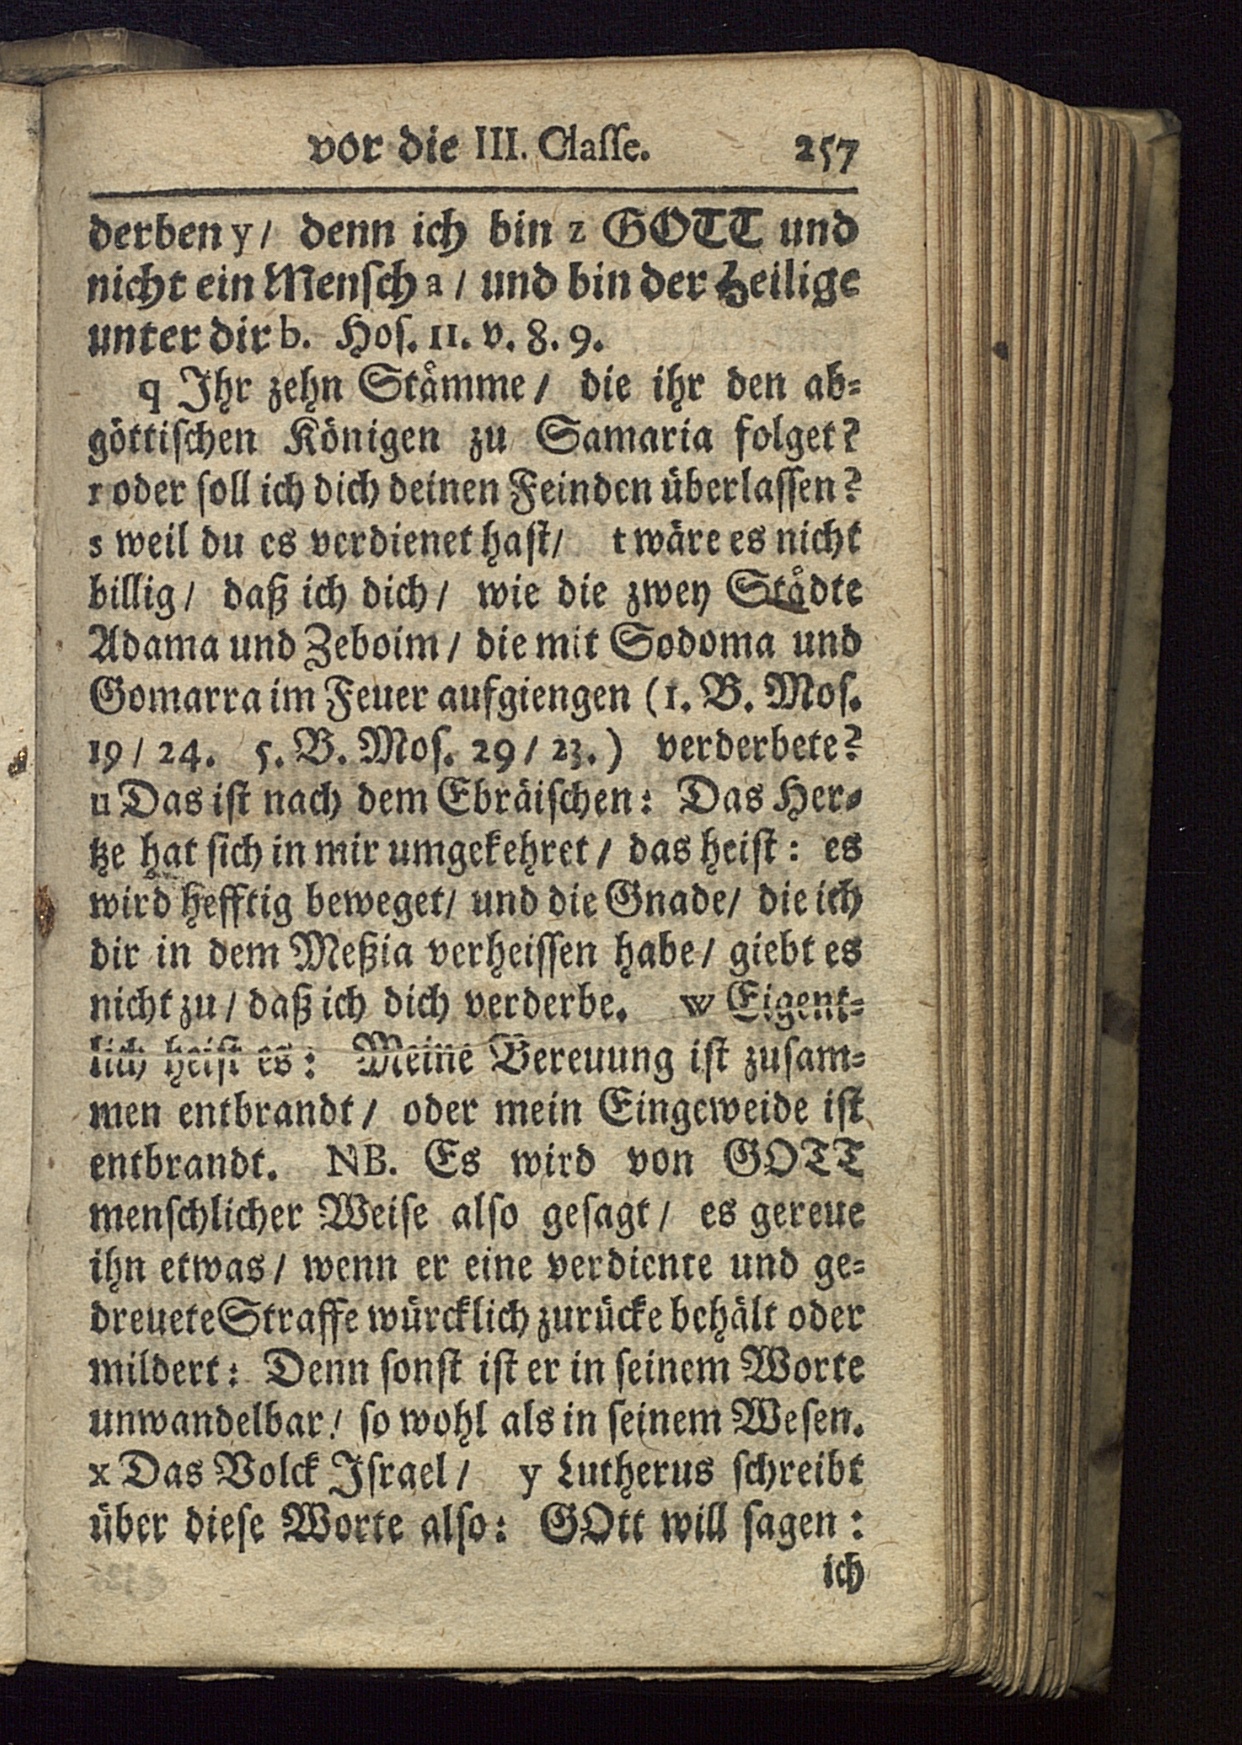 vor die III. Claſſe. 257
derben y/ denn ich bin z GOTT und
nicht ein Menſch a / und bin der Heilige
unter dir b. Hoſ. 11. v. 8. 9.
q Jhr zehn Staͤmme / die ihr den ab⸗
göttiſchen Königen zu Samaria folget?
r oder ſoll ich dich deinen Feinden überlaſſen?
s weil du es verdienet haſt/ t wäre es nicht
billig / daß ich dich / wie die zwey Staͤdte
Adama und Zeboim / die mit Sodoma und
Gomarra im Feuer aufgiengen (1. B. Moſ.
19 / 24. 5. B. Moſ. 29 / 23.) verderbete?
u Das iſt nach dem Ebräiſchen: Das Her⸗
tze hat ſich in mir umgekehret / das heiſt: es
wird hefftig beweget/ und die Gnade/ die ich
dir in dem Meßia verheiſſen habe / giebt es
nicht zu / daß ich dich verderbe. w Eigent⸗
lich heiſt es: Meine Bereuung iſt zuſam⸗
men entbrandt / oder mein Eingeweide iſt
entbrandt. NB. Es wird von GOTT
menſchlicher Weiſe alſo geſagt / es gereue
ihn etwas / wenn er eine verdiente und ge⸗
dreuete Straffe würcklich zurücke behält oder
mildert: Denn ſonſt iſt er in ſeinem Worte
unwandelbar / ſo wohl als in ſeinem Weſen.
x Das Volck Jſrael / y Lutherus ſchreibt
über dieſe Worte alſo: GOtt will ſagen:
ich